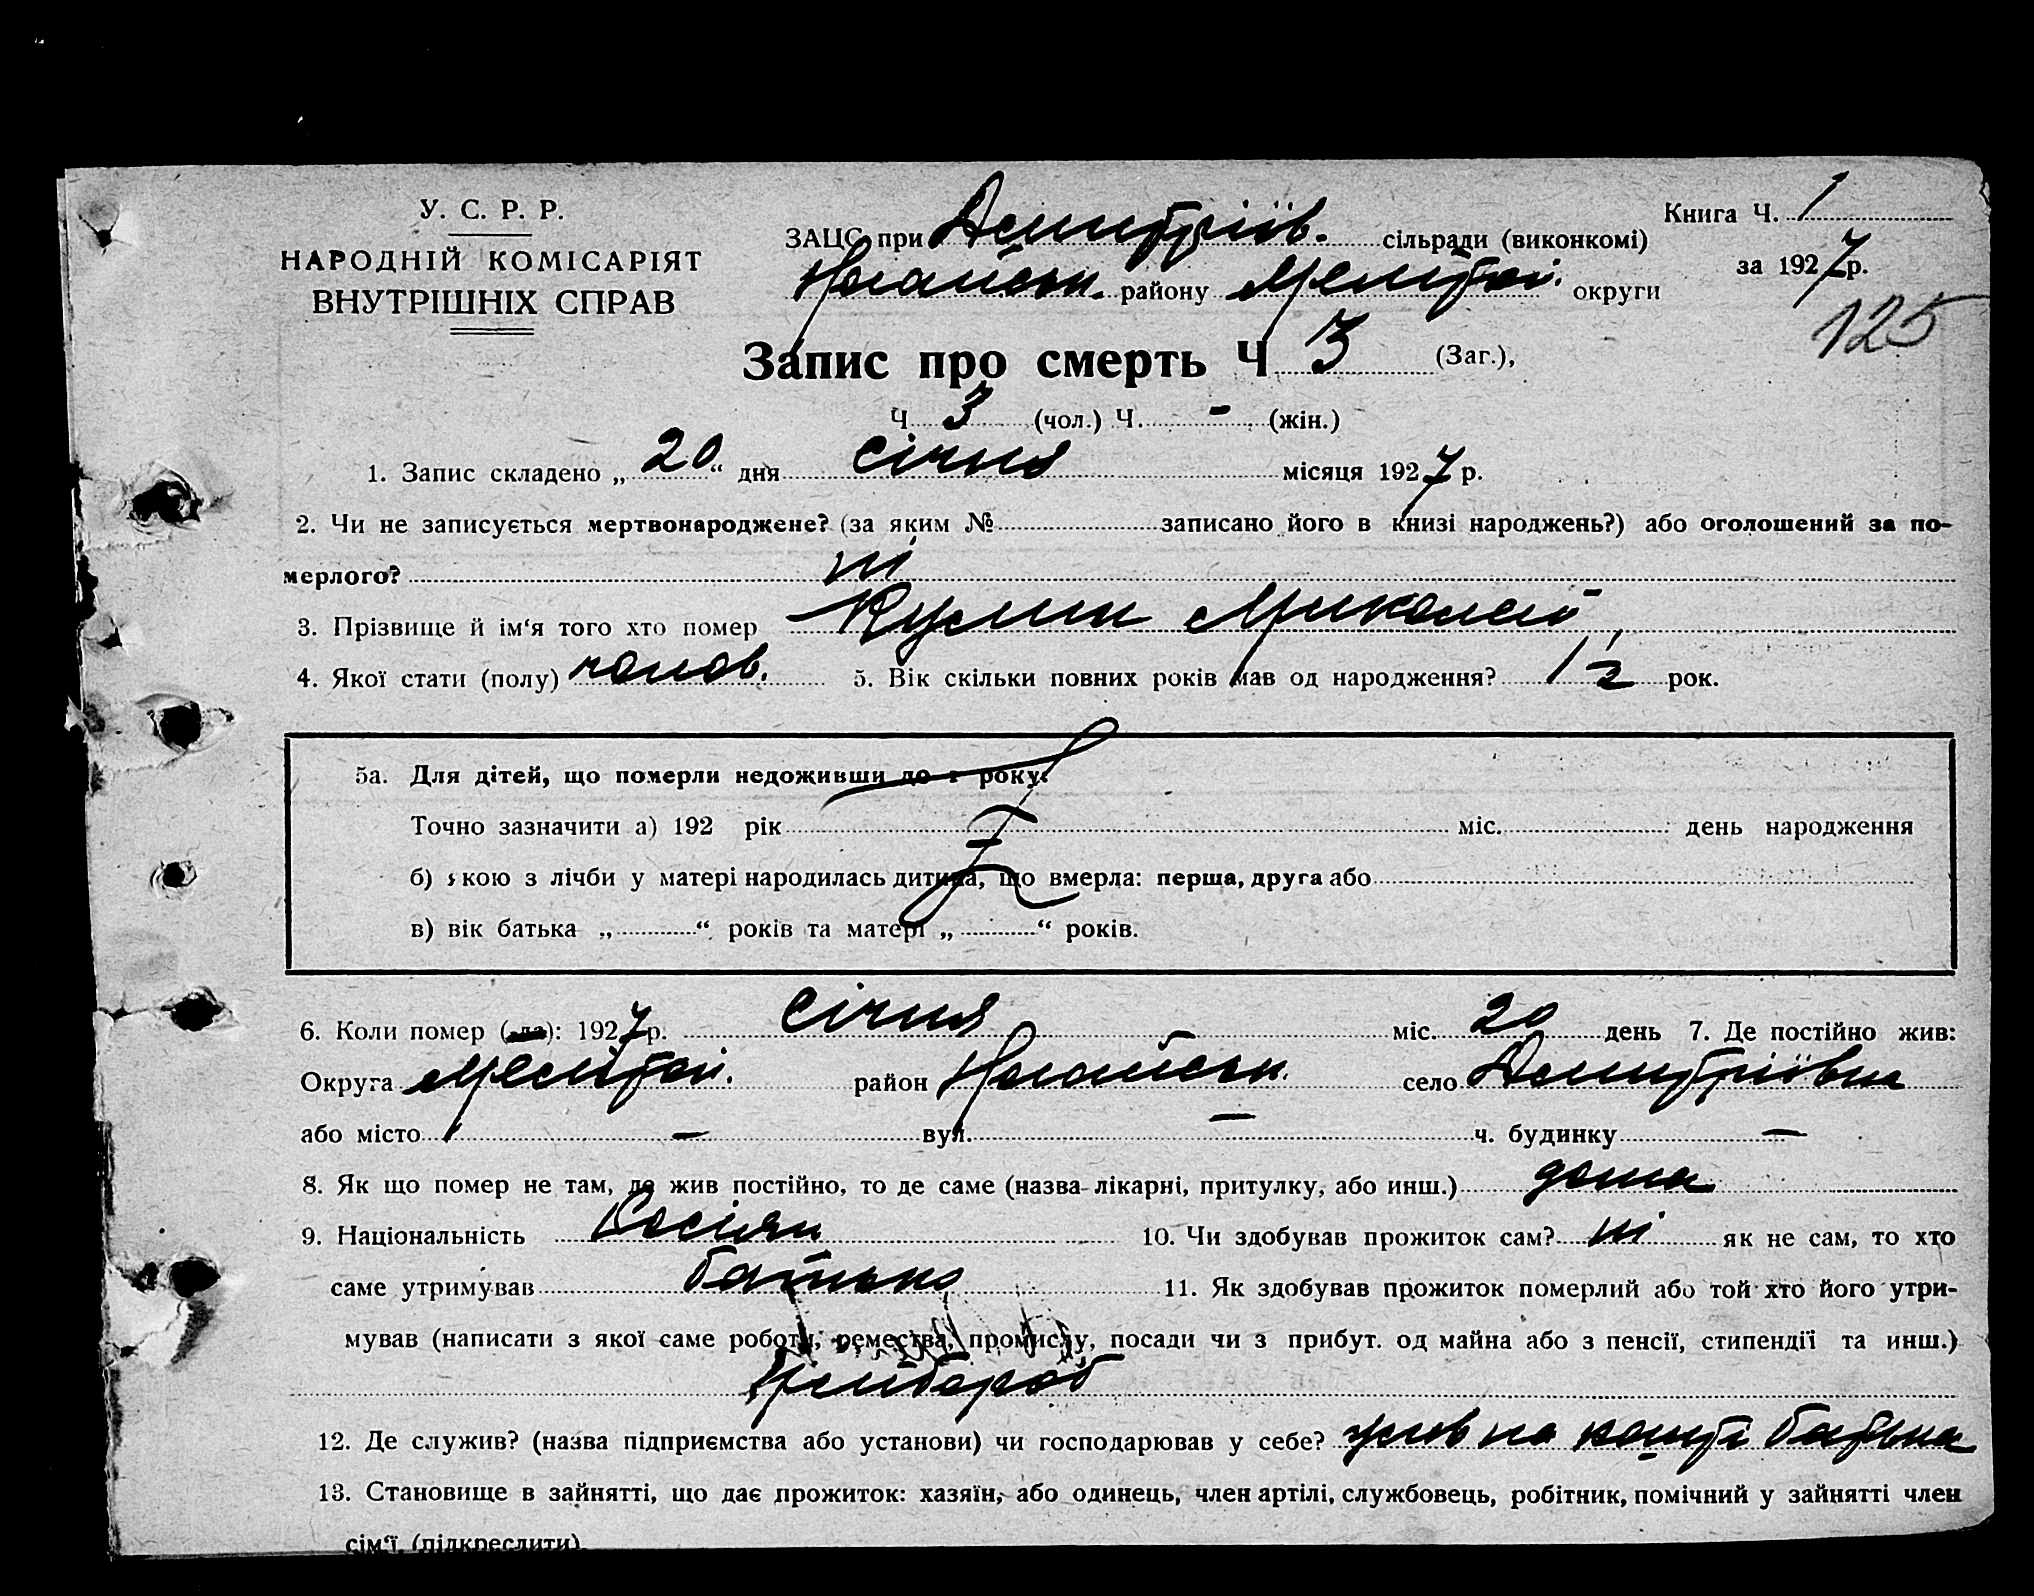 У. С. Р. Р.
НАРОДНІЙ КОМІСАРІЯТ
ВНУТРІШНІХ СПРАВ
ЗАЦС при Дмитріїв. сільради (виконкомі)
Ногайськ. району Меліτοп. округи
Книга Ч. 1
за 1927 р.
125
Запис про смерть Ч 3 (Заг.),
Ч 3 (чол.) Ч. - (жін.)
1. Запис складено „ 20 “ дня Січня місяця 1927 р.
2. Чи не записується мертвонароджене? (за яким № записано його в книзі народжень?) або оголошений за по-
мерлого? ні
3. Прізвище й ім‘я того хто помер Миколай
4. Якої стати (полу) чолов. 5. Вік скільки повних років мав од народження? 1 1/2 рок.
5а. Для дітей, що померли недоживши до 1 року:
Точно зазначити а) 192 рік міс. день народження
б) якою з лічби у матері народилась дитина, що вмерла: перша, друга або
в) вік батька „ “ років та матері „ “ років.
6. Коли помер (ла): 1927 р. Січня міс. 20 день 7. Де постійно жив:
Округа Мелітоп. район Ногайськ. село Дмитріївка
або місто - вул. - ч. будинку -
8. Як що помер не там, де жив постійно, то де саме (назва лікарні, притулку, або инш.) дома
9. Національність Росіян 10. Чи здобував прожиток сам? ні як не сам, то хто
саме утримував батько 11. Як здобував прожиток померлий або той хто його утри-
мував (написати з якої саме роботи, ремества, промислу, посади чи з прибут. од майна або з пенсії, стипендії та инш.)
Хлібороб
12. Де служив? (назва підприємства або установи) чи господарював у себе? жив на кошті батька
13. Становище в зайнятті, що дає прожиток: хазяїн, або одинець, член артілі, службовець, робітник, помічний у зайнятті член
сім‘ї. (підкреслити)